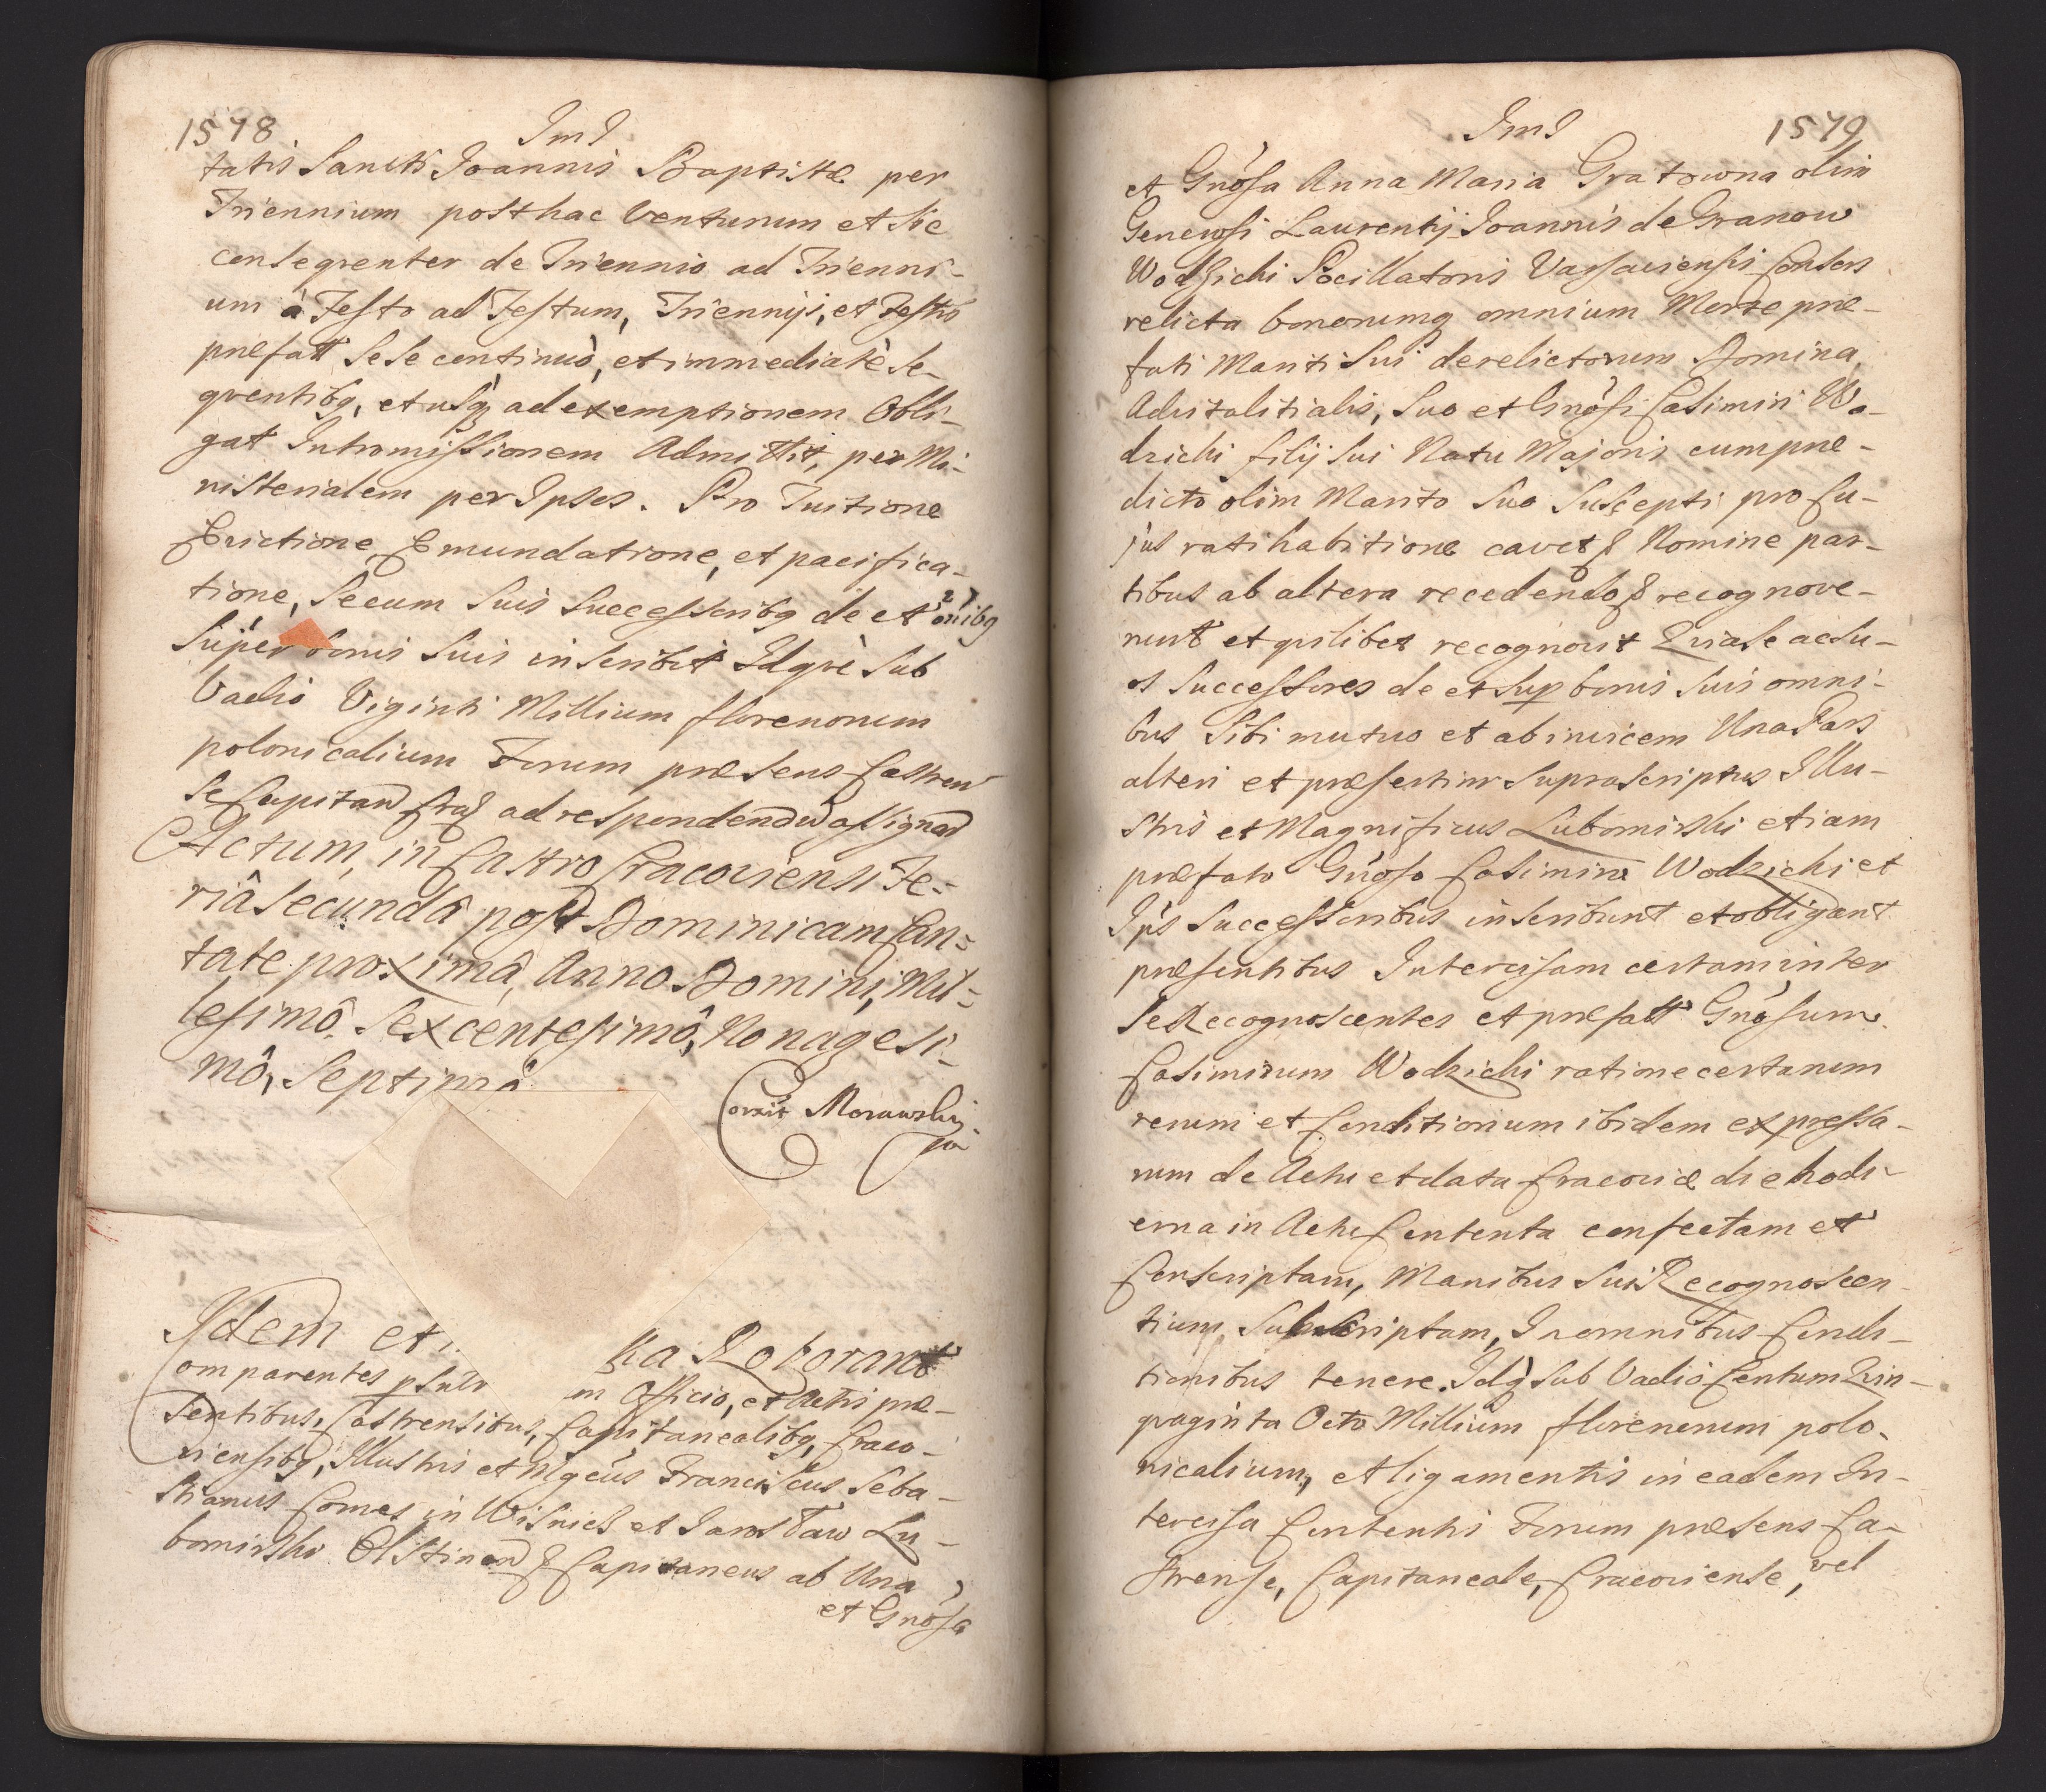 1578
JmJ
tatis Sancti Joannis Baptistæ per
Triennium posthac venturum et sic
consequenter de Triennio ad Trienni-
um à Festo ad Festum, Triennijs, et Festis
præfatt sese continuò, et immediatè se-
quentibq, et usq ad exemptionem Obli-
gat Intromissionem Admittit, per Mi-
nisterialem per Ipsos. Pro Tuitione
Evictione Emundatione, et pacifica-
tione, Secum Suis Successoribq de et onibq
Super bonis Suis inscribit Idque Sub
Vadio Viginti Millium florenorum
polonicalium Forum præsens Castren
se Capitan Crac ad respondendu assignan
Actum, in Castro Cracoviensi Fe-
riâ secundâ post Dominicam Can-
tate proximâ, Anno Domini, Mil-
lesimô. Sexcentesimô, Nonagesi-
mô, Septimô
Corrxit Morawskij
Idem et
ka Roborant
Comparentes psnlr
in Officio, et Actis præ-
sentibus, Castrensibus, Capitanealibq, Craco-
viensibq, Illustris et Mgcus Franciscus Seba-
stianus Comes in Wisnicz et Jarosław Lu-
bomirski Olstinen & Capitaneus ab Una
et Gnosa
JmJ
1579
et Gnosa Anna Maria Gratowna olim
Generosi Laurentij Joannis de Granow
Wodzicki Pocillatoris Varsaviensis Consors
relicta bonorumq omnium Morte præ-
fati Mariti Sui derelictorum Domina
Advitalitialis, Suo et Gnosi Casimiri Wo-
dzicki filij sui Natu Majoris cum præ-
dicto olim Marito Suo Suscepti pro cu-
jus ratihabitione cavet & Nomine par-
tibus ab altera recedendo & recognove-
runt et quilibet recognovit Quia Se ac Su-
os Successores de et sup bonis suis omni-
bus Sibi mutuo et ab invicem Una Pars
alteri et præsertim Suprascriptus Illu-
stris et Magnificus Lubomirski etiam
præfato Gnoso Casimiro Wodzicki et
Ips Successoribus inscribunt et obligant
præsentibus Intercisam certam inter
Se Recognoscentes et præfatt Gnosum
Casimirum Wodzicki ratione certarum
rerum et Conditionum ibidem expressa-
rum de Actu et data Cracoviæ die hodi-
erna in Actu Contenta confectam et
Conscriptam, Manibus Suis Recognoscen
tium Subscriptam, In omnibus Condi-
tionibus tenere. Idq Sub Vadio Centum Quin-
quaginta Octo Millium florenorum polo-
nicalium, et ligamentis in eadem In-
tercisa Contentis Forum præsens Ca-
strense, Capitaneale, Cracoviense, vel